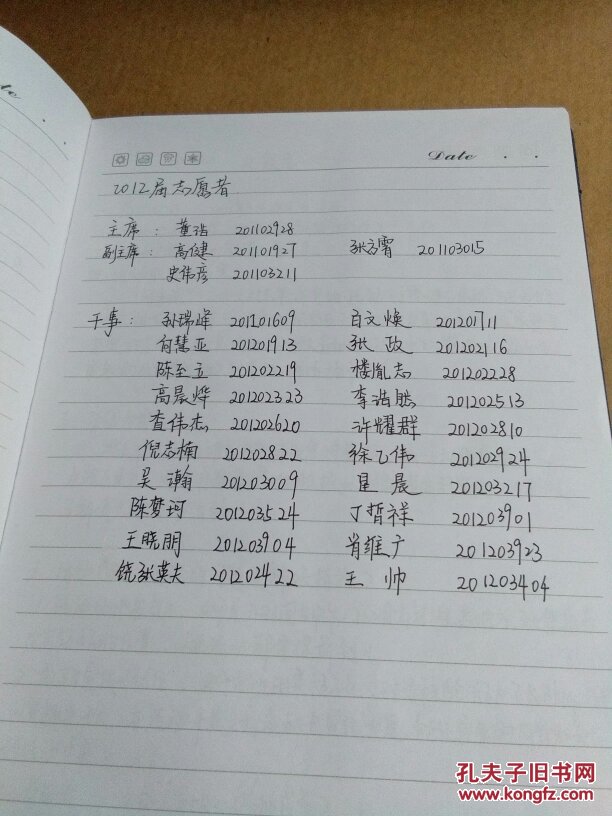 te
Date
2012届志愿者
主席： 董浩 201102928
副主席： 高健 201101927 张方霄 201103015
史伟彦 201103211
干事： 孙瑞峰 201201609 白文焕 201201711
何慧亚 201201913 张政 201202116
陈至立 201202219 楼胤志 201202228
高晨烨 201202323 李浩胜 201202513
查伟杰 201202620 许耀群 201202810
倪志楠 201202822 徐乙伟 201202924
吴瀚 201203009 星晨 201203217
陈梦珂 201203524 丁哲祥 201203901
王晓朋 201203904 肖维广 201203923
饶张英夫 201202422 王帅 201203404
孔夫子旧书网
www.kongfz.com